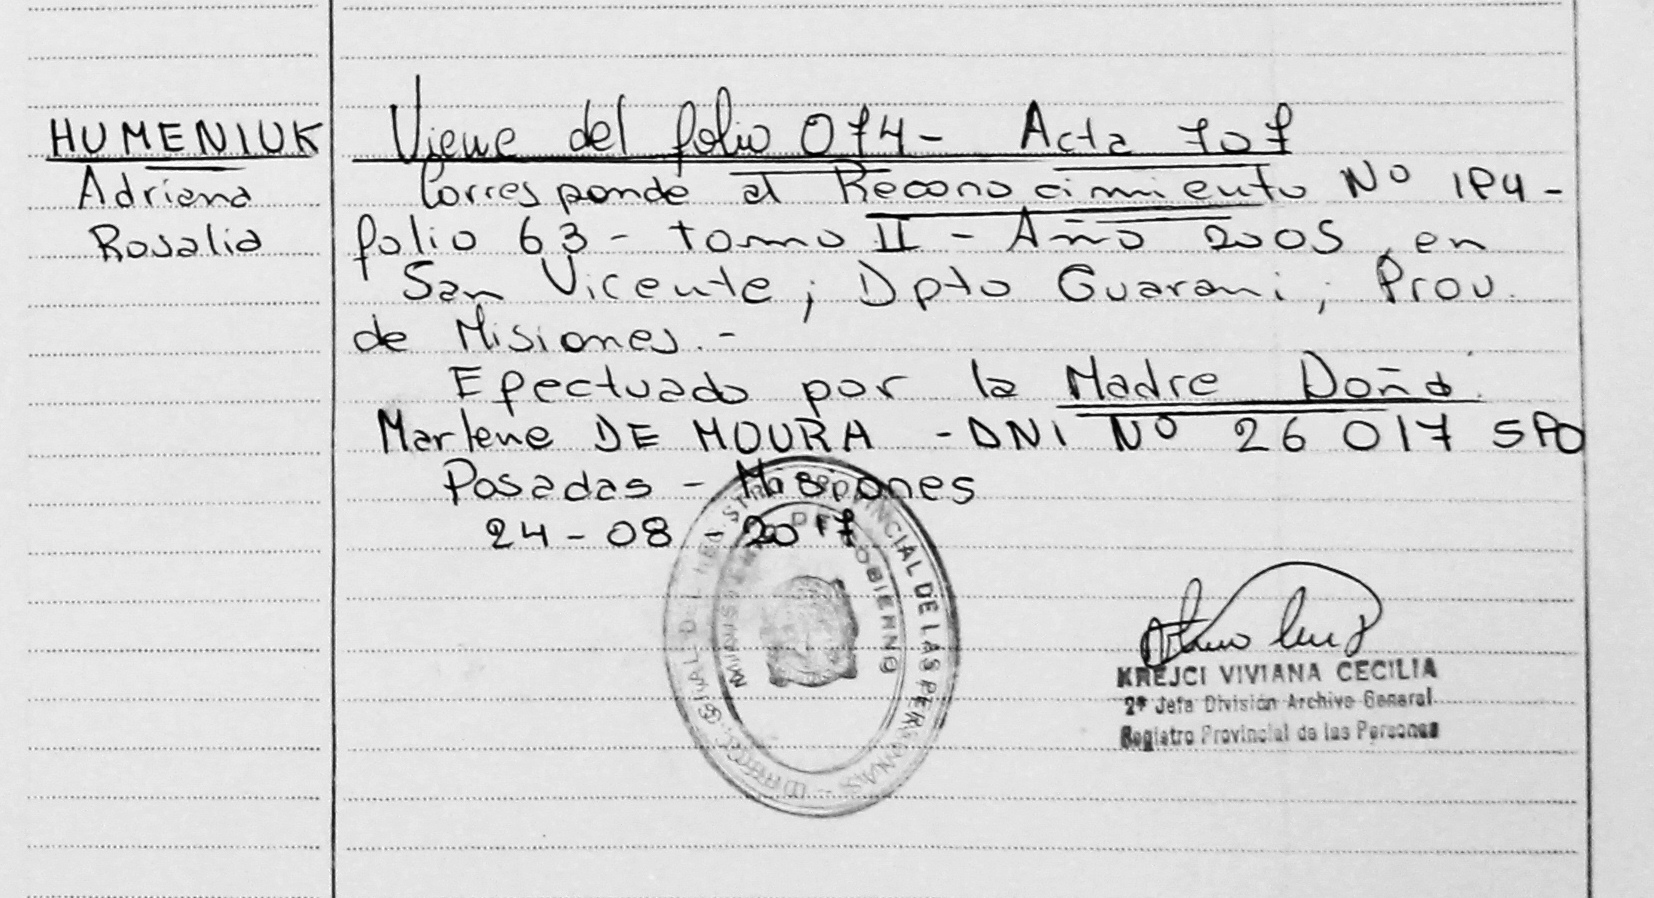 HUMENIUK
Adriana
Rosalia
Viene del folio 074- Acta 707
Corresponde al Reconocimiento Nº 184-
folio 63- tomo II - Año 2005, en
San Vicente; Dpto Guarani; Prov.
de Misiones.-
Efectuado por la Madre Doña
Marlene DE MOURA - DNI Nº 26 017 580
Posadas - Misiones
24-08-2017
PROVINCIAL DE LAS PERSONAS
MINISTERIO DE GOBIERNO
KREJCI VIVIANA CECILIA
2ª Jefa División Archivo General
Registro Provincial de las Personas